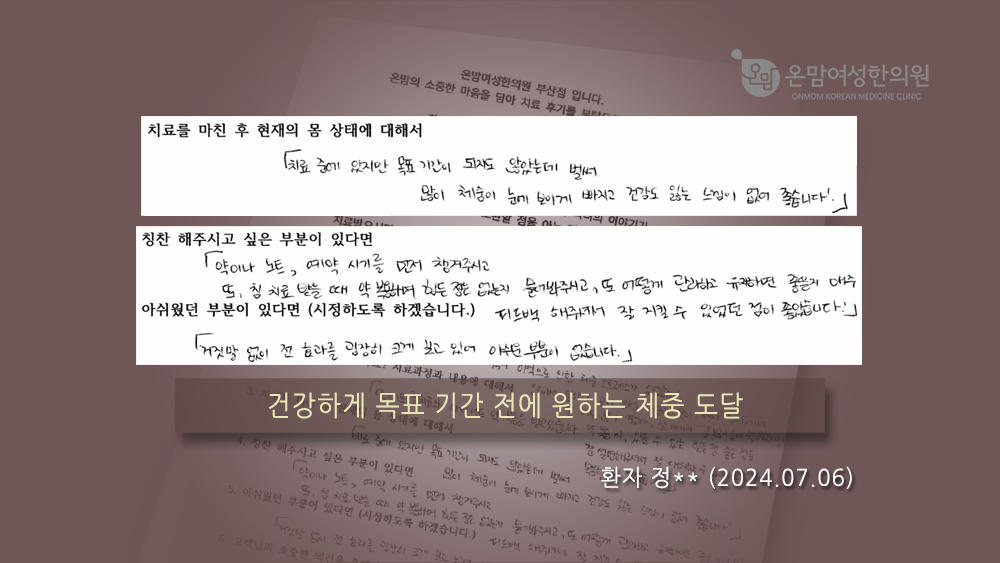 온맘여성한의원
ONMOM KOREAN MEDICINE CLINIC
온맘여성한의원 부산점 입니다.
온맘의 소중한 마음을 담아 치료 후기를
치료를 마친 후 현재의 몸 상태에 대해서
「치료 중에 있지만 목표 기간이 되지도 않았는데 벌써
많이 체중이 눈에 보이게 빠지고 건강도 잃는 느낌이 없어 좋습니다!」
칭찬 해주시고 싶은 부분이 있다면
「약이나 노트, 예약 시기를 먼저 챙겨주시고
또, 침 치료 받을 때 약 복용하며 힘든 점은 없는지 물어봐주시고, 또 어떻게 관리하고 유지하면 좋을지 매주
아쉬웠던 부분이 있다면 (시정하도록 하겠습니다.)
피드백 해주셔서 잘 지킬 수 있었던 점이 좋았습니다!」
「거짓말 없이 전 효과를 굉장히 크게 보고 있어 아쉬운 부분이 없습니다.」
건강하게 목표 기간 전에 원하는 체중 도달
환자 정** (2024.07.06)
칭찬 해주시고 싶은 부분이 있다면
5. 아쉬웠던 부분이 있다면 (시정하도록 하겠습니다.)